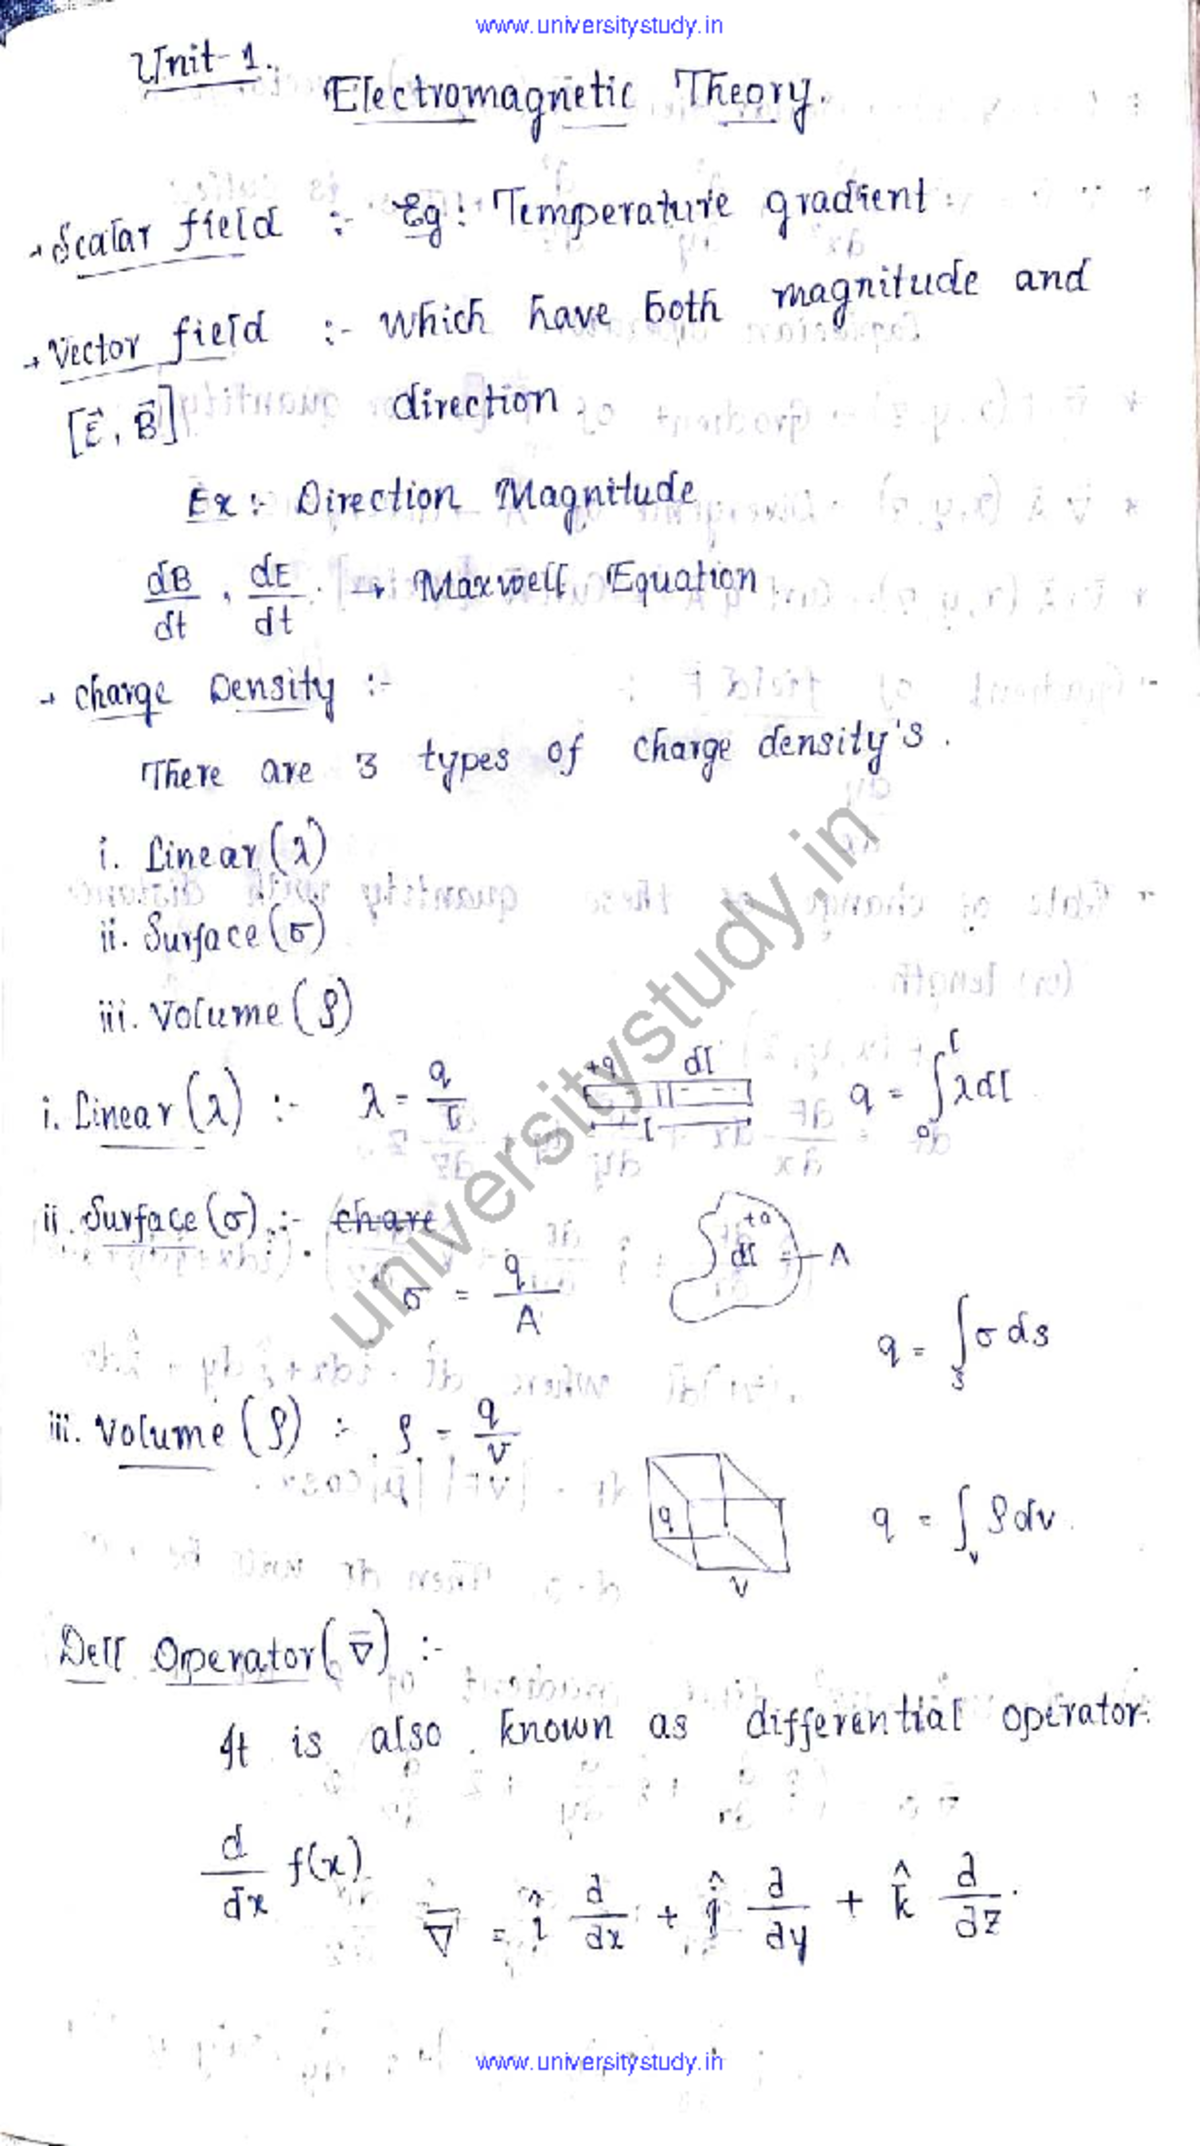 www.universitystudy.in
Unit-1.
Electromagnetic Theory.
→ Scalar field :- Eg: Temperature gradient.
→ Vector field :- which have both magnitude and
[E⃗, B⃗] direction.
Ex:- Direction Magnitude
dB/dt , dE/dt . → Maxwell Equation
→ charge Density :-
There are 3 types of charge density's.
i. Linear (λ)
ii. Surface (σ)
iii. Volume (ρ)
i. Linear (λ) :- λ = q/l +q dl l q = ∫₀ˡ λdl
ii. Surface (σ) :- chare
σ = q/A +q dl A
q = ∫s σ ds
iii. Volume (ρ) :- ρ = q/v
q v q = ∫v ρdv.
Dell Operator (∇̄) :-
It is also known as differential operator.
d/dx f(x)
∇̄ = î ∂/∂x + ĵ ∂/∂y + k̂ ∂/∂z.
universitystudy.in
www.universitystudy.in